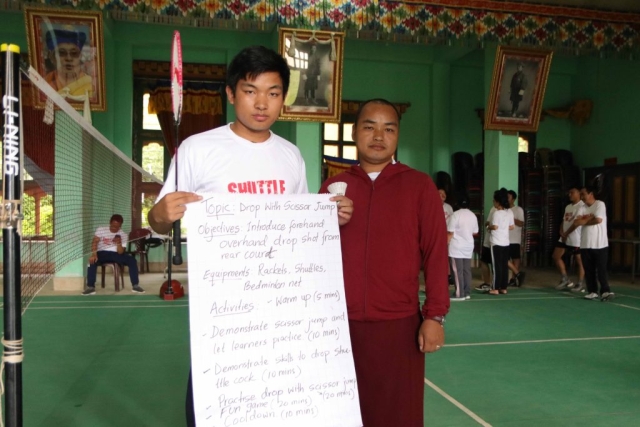 LI-NING
SHUTTLE
Topic: Drop With Scissor Jump
Objectives: Introduce forehand
overhand drop shot from
rear court
Equipments: Rackets, Shuttles,
Bedminton net
Activities: - Warm up (5 mins)
- Demonstrate scissor jump and
let learners practice (10 mins)
- Demonstrate skills to drop shut-
tle cock (10 mins)
- Practise drop with scissor jump
(20 mins)
- Fun game (20 mins)
- Cooldown (10 mins)